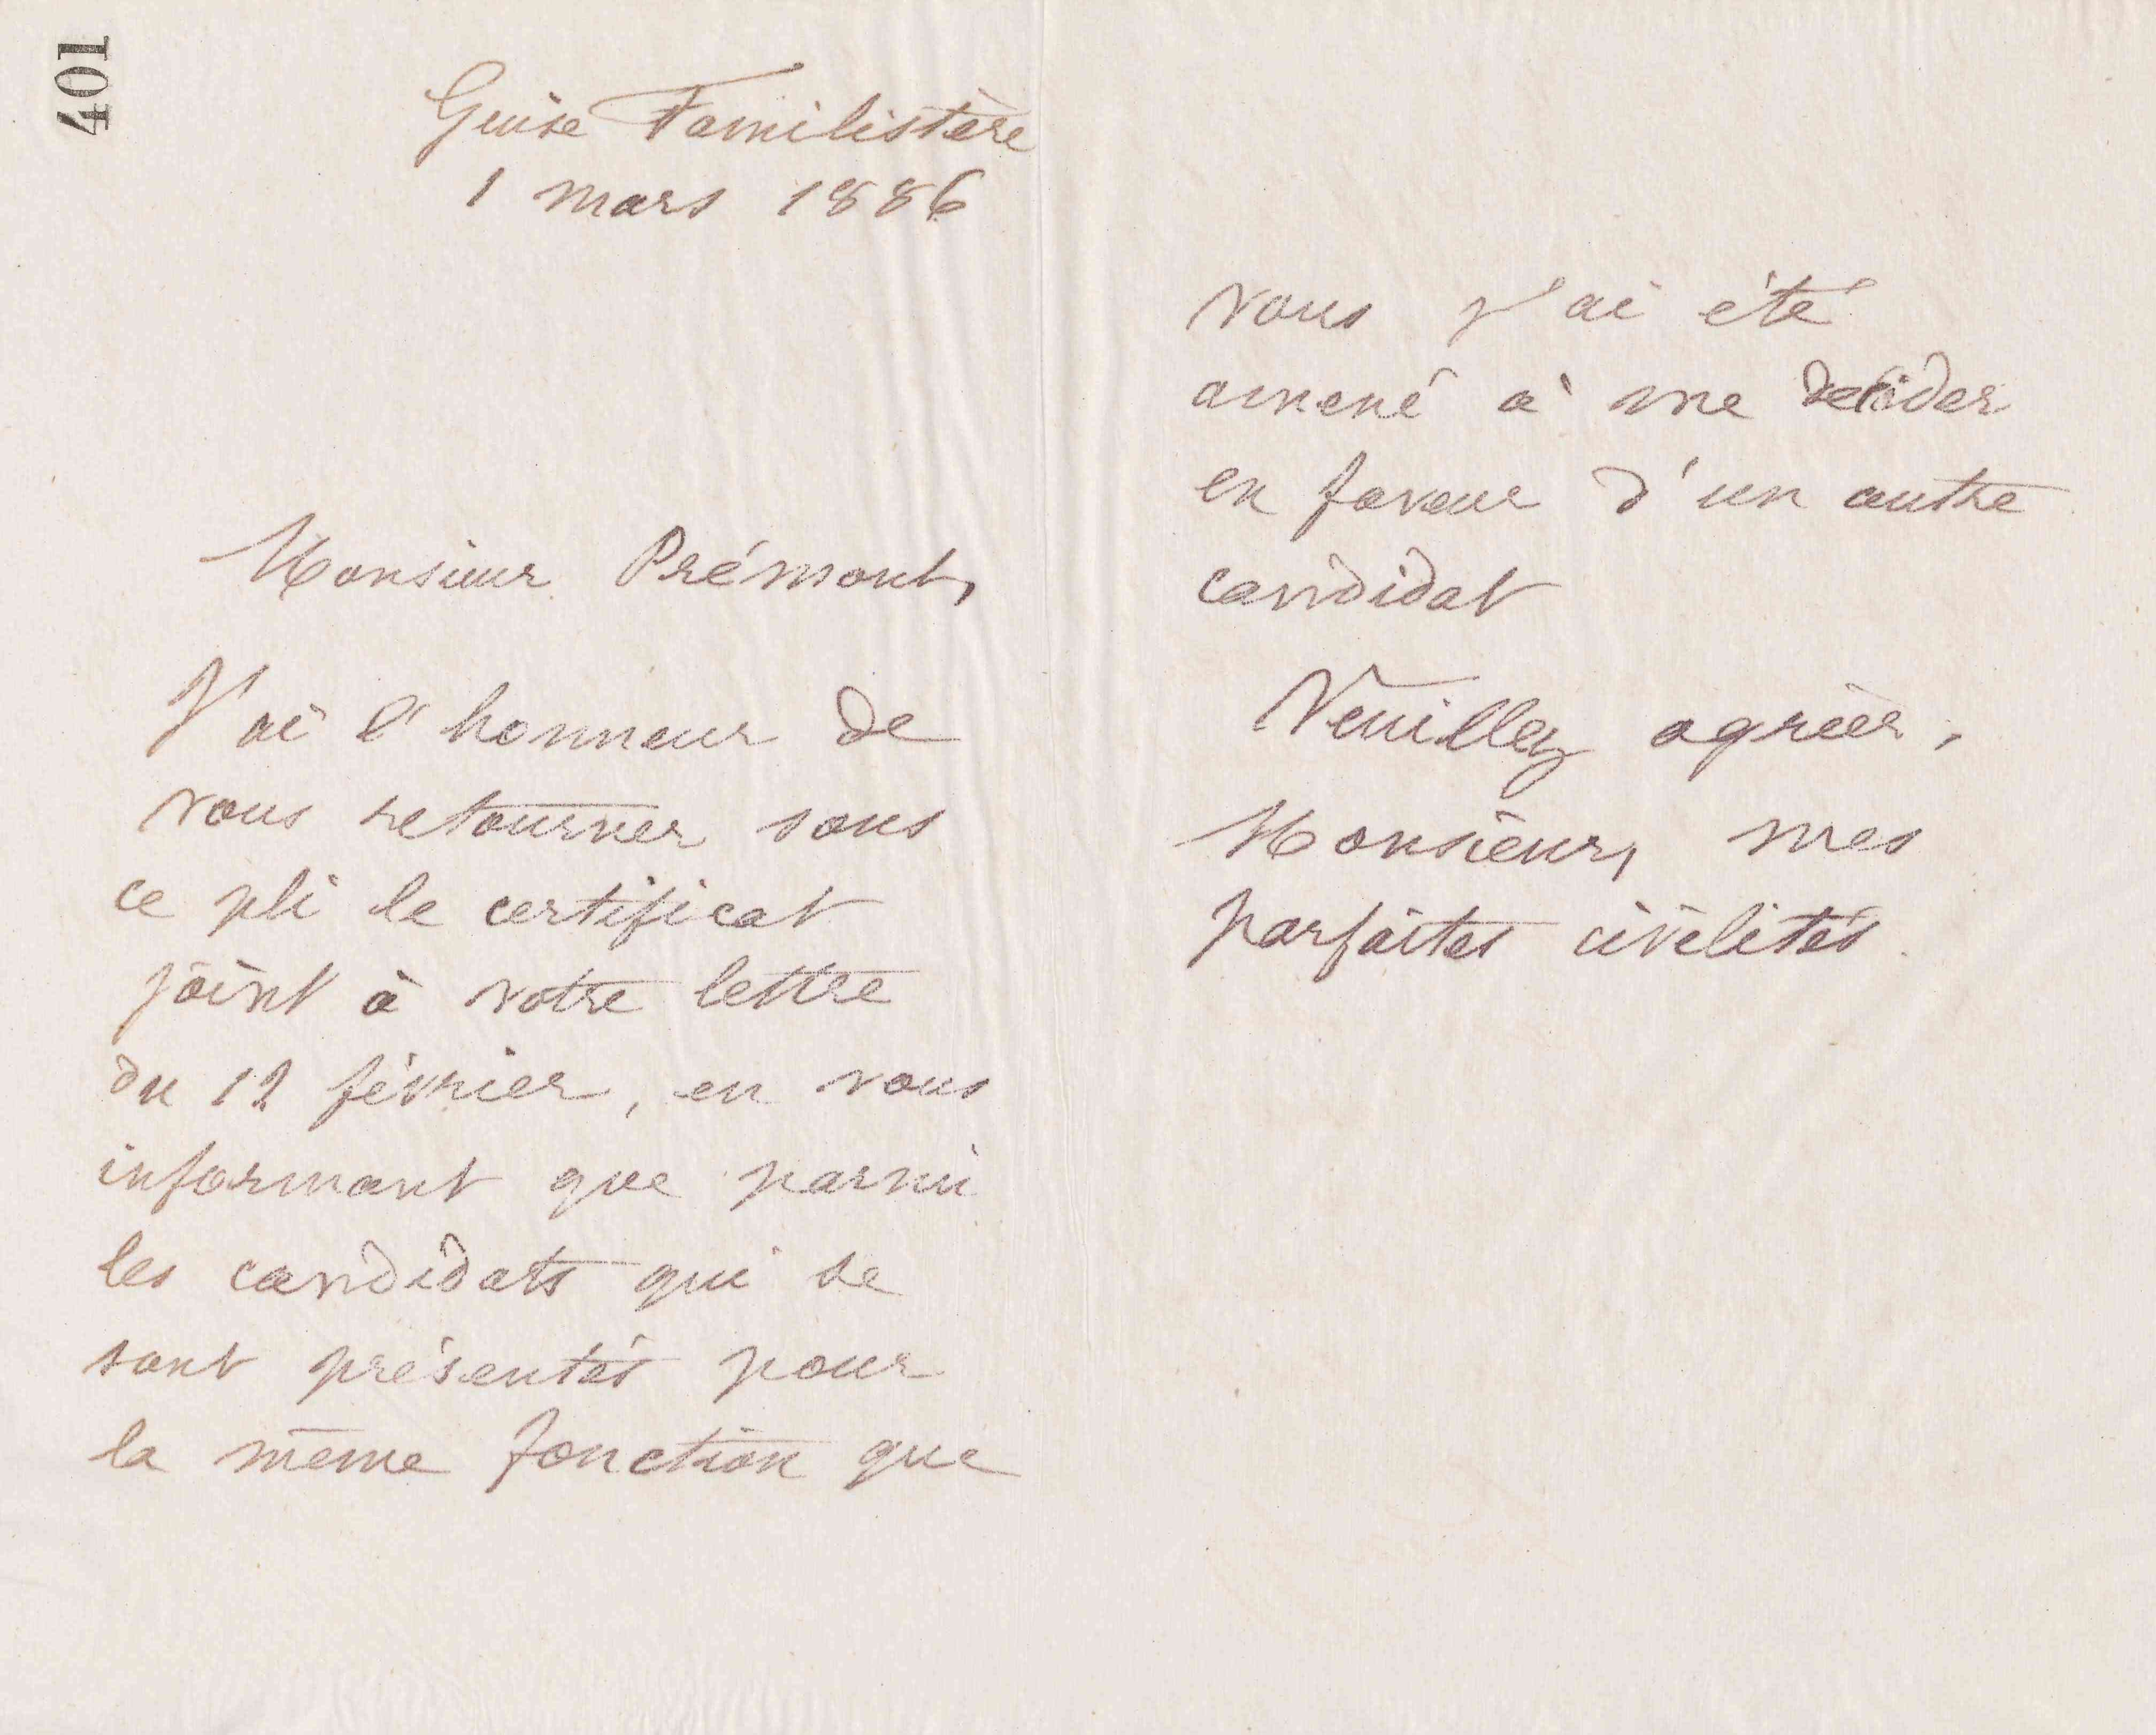 401
Guise Familistère
1 mars 1886
Monsieur Prémont,
J'ai l'honneur de
vous retourner sous
ce pli le certificat
joint à votre lettre
du 12 février, en vous
informant que parmi
les candidats qui se
sont présentés pour
la même fonction que
vous j'ai été
amené à me decider
en faveur d'un autre
candidat
Veuillez agréer,
Monsieur, mes
parfaites civilités.